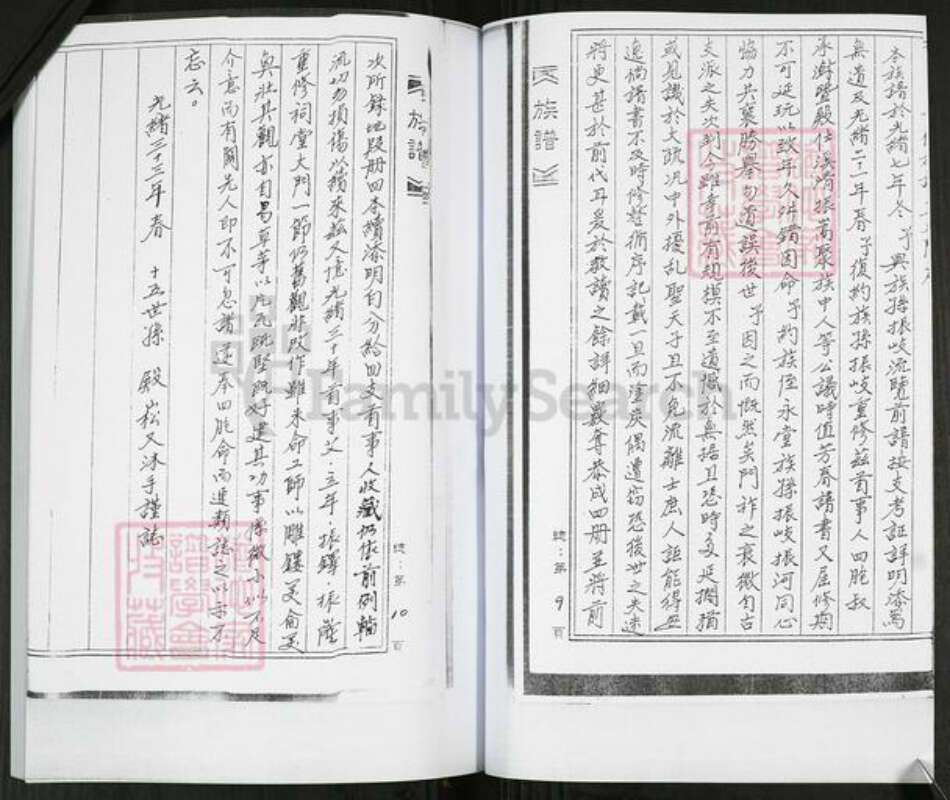 本族譜於光緒七年冬予與族孫振岐流覽前譜按支考証詳明添寫
無遺及光緒二十一年春予復約族孫振岐重修茲首事人四胞叔
承澍暨毅仕淺濟振嵩聚族中人等公議時值芳春譜書又屆修期
不可延玩以致年久舛錯因命予約族侄永堂族孫振岐振河同心
協力共襄勝舉勿遺誤後世予因之而慨然矣門祚之衰微勻古
支派之失次到今雖幸前有規模不至遺憾於無稽且恐時多延擱猶
或見譏於大疏況中外擾乱聖天子且不免流離士庶人詎能得無
逸倘譜書不及時修整衕序記載一旦而塗炭偶遭竊恐後世之失迷
將更甚於前代耳爰於教讀之餘詳細嚴夸恭成四册並將前
族譜
總:第 9 頁
次所錄地段册四本續添明白分給四支首事人收藏仍依前例輪
流切勿損傷以待來茲又憶光緒三十年首事父.立年.振鐸振陞
重修祠堂大門一節仍舊觀非改作雖未命工師以雕鏤美侖美
奐壯其觀亦自易草茅以磚瓦既堅既好建其功事搽微小似不足
介意而有關先人印不可忽諸遂奉四胞命而連類誌之以示不
忘云。
光緒三十三年春 十五世孫 殿崧又沐手謹誌
族譜
總:第 10 頁
FamilySearch